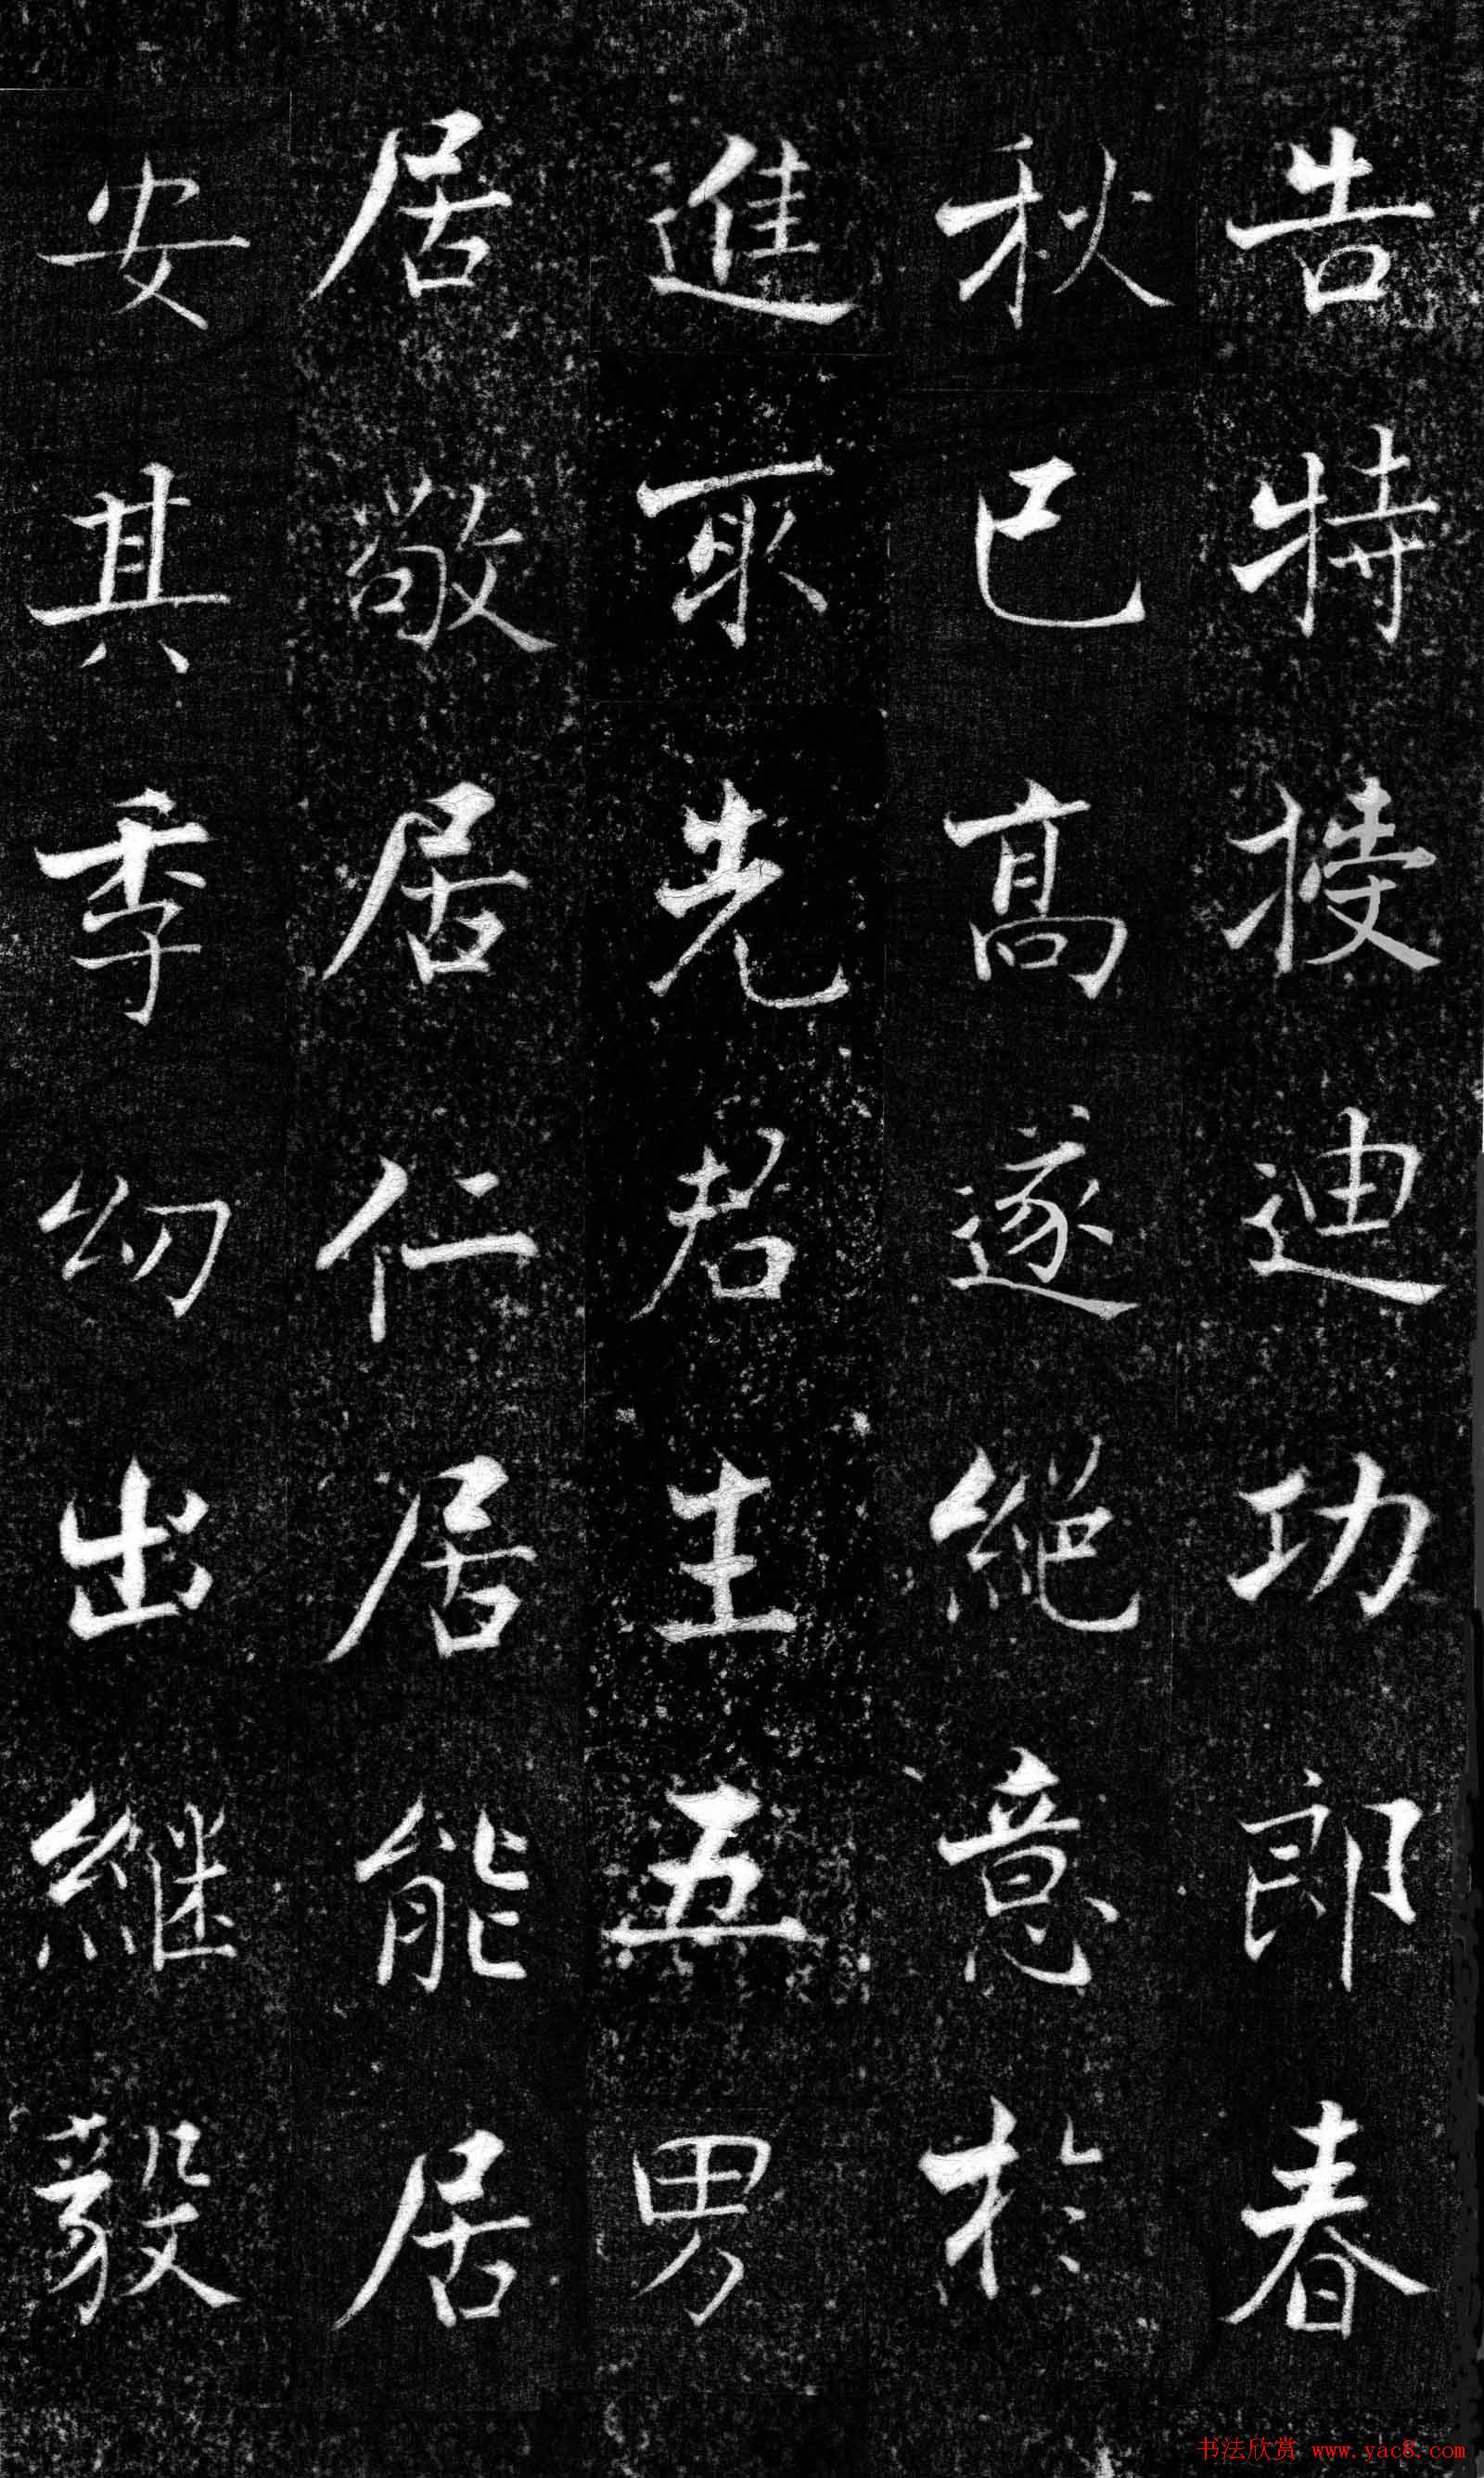 告特授迪功郎春
秋已高遂絕意於
進取先君生五男
居敬居仁居能居
安其季幼出繼毅
书法欣赏 www.yac8.com